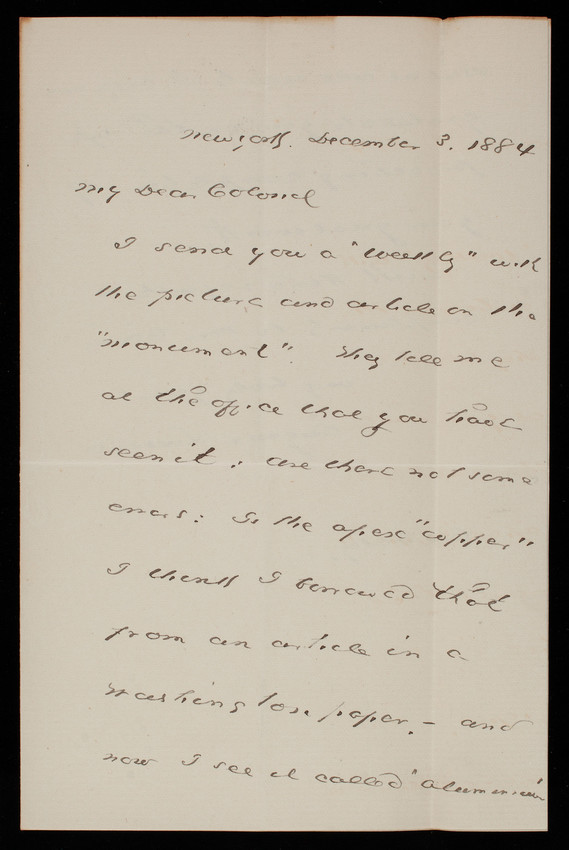 New York. December 3. 1884
My Dear Colonel
I send you a "Weekly" with
the picture and article on the
"monument". They tell me
at the office that you have
seen it; are there not some
errors: Is the apex "copper"
I think I borrowed that
from an article in a
Washington paper. – and
now I see it called "aluminium